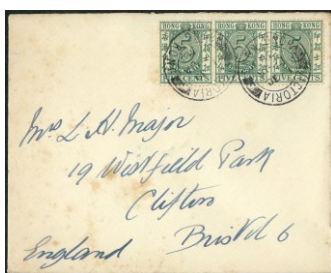 HONG KONG HONG KONG HONG KONG
5 5 5
FIVE CENTS FIVE CENTS FIVE CENTS
VICTORIA VICTORIA
Mrs L. H. Major
19 Westfield Park
Clifton
Bristol 6
England